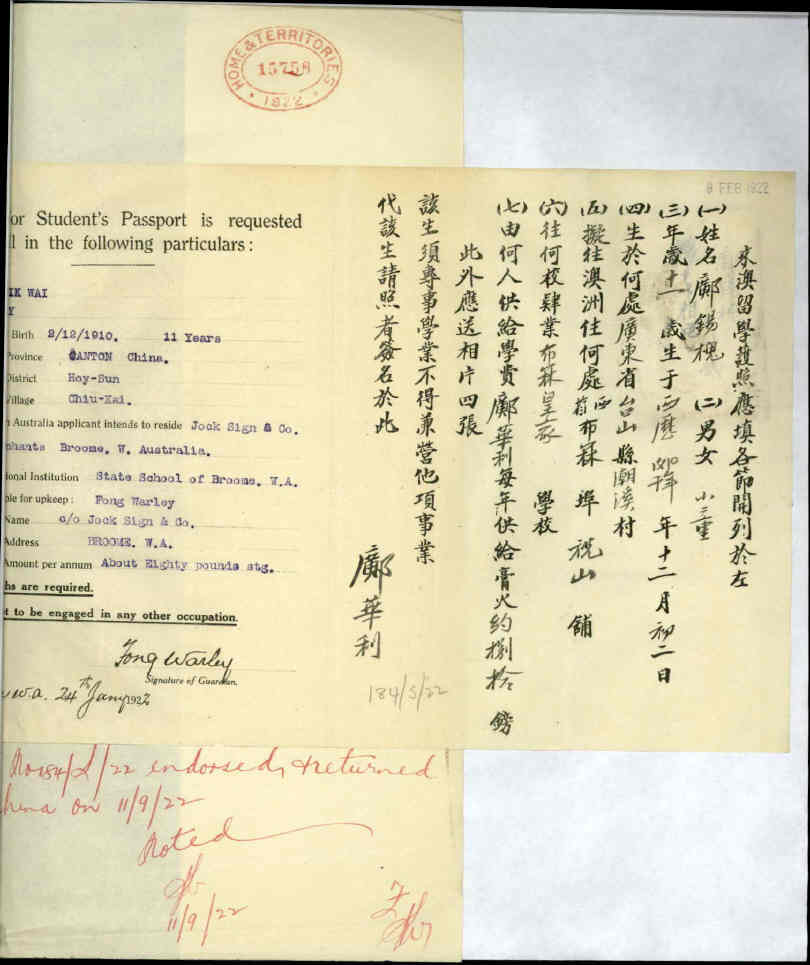 HOME & TERRITORIES
15758
1922
8 FEB 1922
or Student's Passport is requested
l in the following particulars:
IK WAI
Y
Birth 2/12/1910. 11 Years
Province CANTON China.
District Hoy-Sun
Village Chiu-Kai.
n Australia applicant intends to reside Jock Sign & Co.
nhants Broome. W. Australia.
ional Institution State School of Broome. W.A.
ble for upkeep: Fong Warley
Name c/o Jock Sign & Co.
Address BROOME. W.A.
Amount per annum About Eighty pounds stg.
hs are required.
t to be engaged in any other occupation.
Fong Warley
Signature of Guardian.
W.A. 24th Jany 1922
來澳留學護照應填各節開列於左
(一)姓名 鄺錫槐 (二)男女 小童
(三)年歲十一歲生于西歷 年十二月初二日
(四)生於何處廣東省台山縣潮溪村
(五)擬往澳洲住何處 布冧埠 祝山舖
(六)往何校肄業布冧皇家 學校
(七)由何人供給學費鄺華利每年供給膏火約捌拾鎊
此外應送相片四張
該生須專事學業不得兼營他項事業
代該生請照者簽名於此
鄺華利
184/S/22
No 184/S/22 endorsed & returned
hina on 11/9/22
Noted
11/9/22